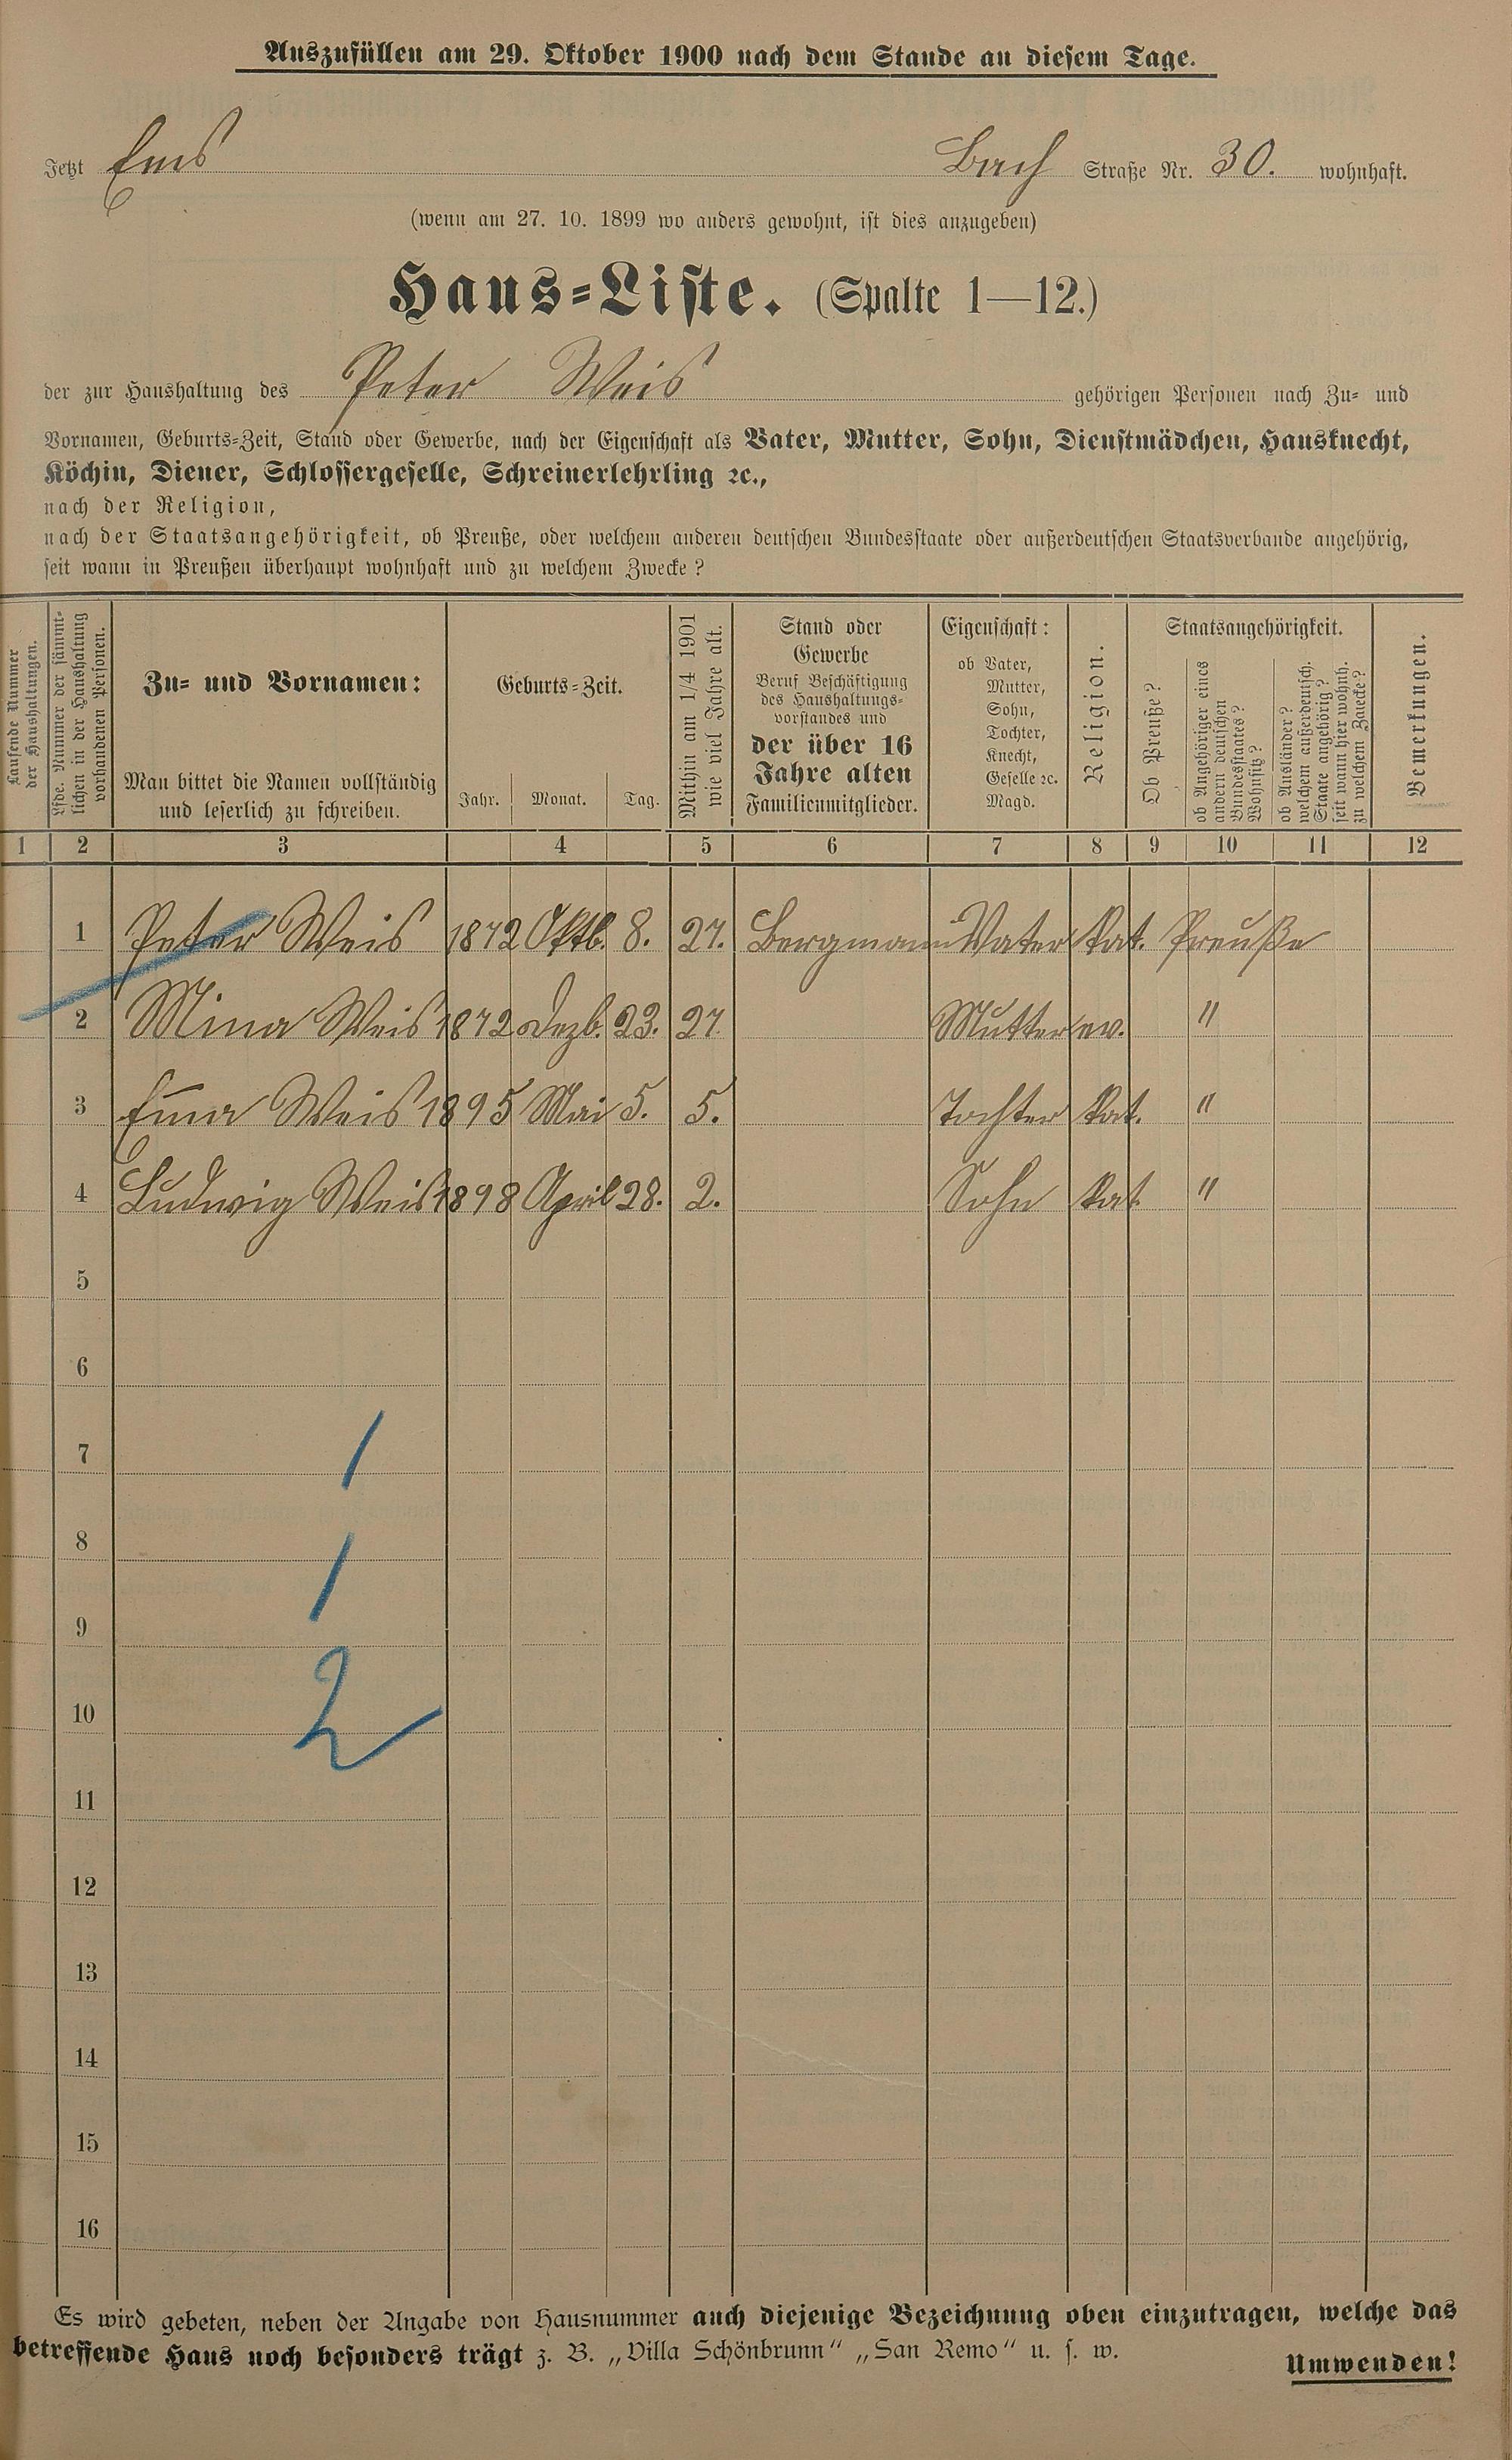 Auszufüllen am 29. Oktober 1900 nach dem Stande an diesem Tage.
Jetzt Ems Bach Straße Nr. 30. wohnhaft.
(wenn am 27. 10. 1899 wo anders gewohnt, ist dies anzugeben)
Haus-Liste. (Spalte 1—12.)
der zur Haushaltung des Peter Weis gehörigen Personen nach Zu- und
Vornamen, Geburts-Zeit, Stand oder Gewerbe, nach der Eigenschaft als Vater, Mutter, Sohn, Dienstmädchen, Hausknecht,
Köchin, Diener, Schlossergeselle, Schreinerlehrling ꝛc.,
nach der Religion,
nach der Staatsangehörigkeit, ob Preuße, oder welchem anderen deutschen Bundesstaate oder außerdeutschen Staatsverbande angehörig,
seit wann in Preußen überhaupt wohnhaft und zu welchem Zwecke?
Laufende Nummer
der Haushaltungen.
Lfde. Nummer der sämmt-
lichen in der Haushaltung
vorhandenen Personen.
Zu- und Vornamen:
Man bittet die Namen vollständig
und leserlich zu schreiben.
Geburts-Zeit.
Jahr. Monat. Tag.
Mithin am 1/4 1901
wie viel Jahre alt.
Stand oder
Gewerbe
Beruf Beschäftigung
des Haushaltungs-
vorstandes und
der über 16
Jahre alten
Familienmitglieder.
Eigenschaft:
ob Vater,
Mutter,
Sohn,
Tochter,
Knecht,
Geselle ꝛc.
Magd.
Religion.
Staatsangehörigkeit.
Ob Preuße?
ob Angehöriger eines
andern deutschen
Bundesstaates?
Wohnsitz?
ob Ausländer?
welchem außerdeutsch.
Staate angehörig?
seit wann hier wohnh.
zu welchem Zwecke?
Bemerkungen.
1 2 3 4 5 6 7 8 9 10 11 12
1 Peter Weis 1872 Oktb. 8. 27. Bergmann Vater kat. Preuße
2 Mina Weis 1872 Dezb. 23. 27. Mutter ev. "
3 Em̅a Weis 1895 Mai 5. 5. Tochter kat. "
4 Ludwig Weis 1898 April 28. 2. Sohn kat. "
5
6
7
1
8
1
9
10
2
11
12
13
14
15
16
Es wird gebeten, neben der Angabe von Hausnummer auch diejenige Bezeichnung oben einzutragen, welche das
betreffende Haus noch besonders trägt z. B. „Villa Schönbrunn" „San Remo" u. s. w.
Umwenden!